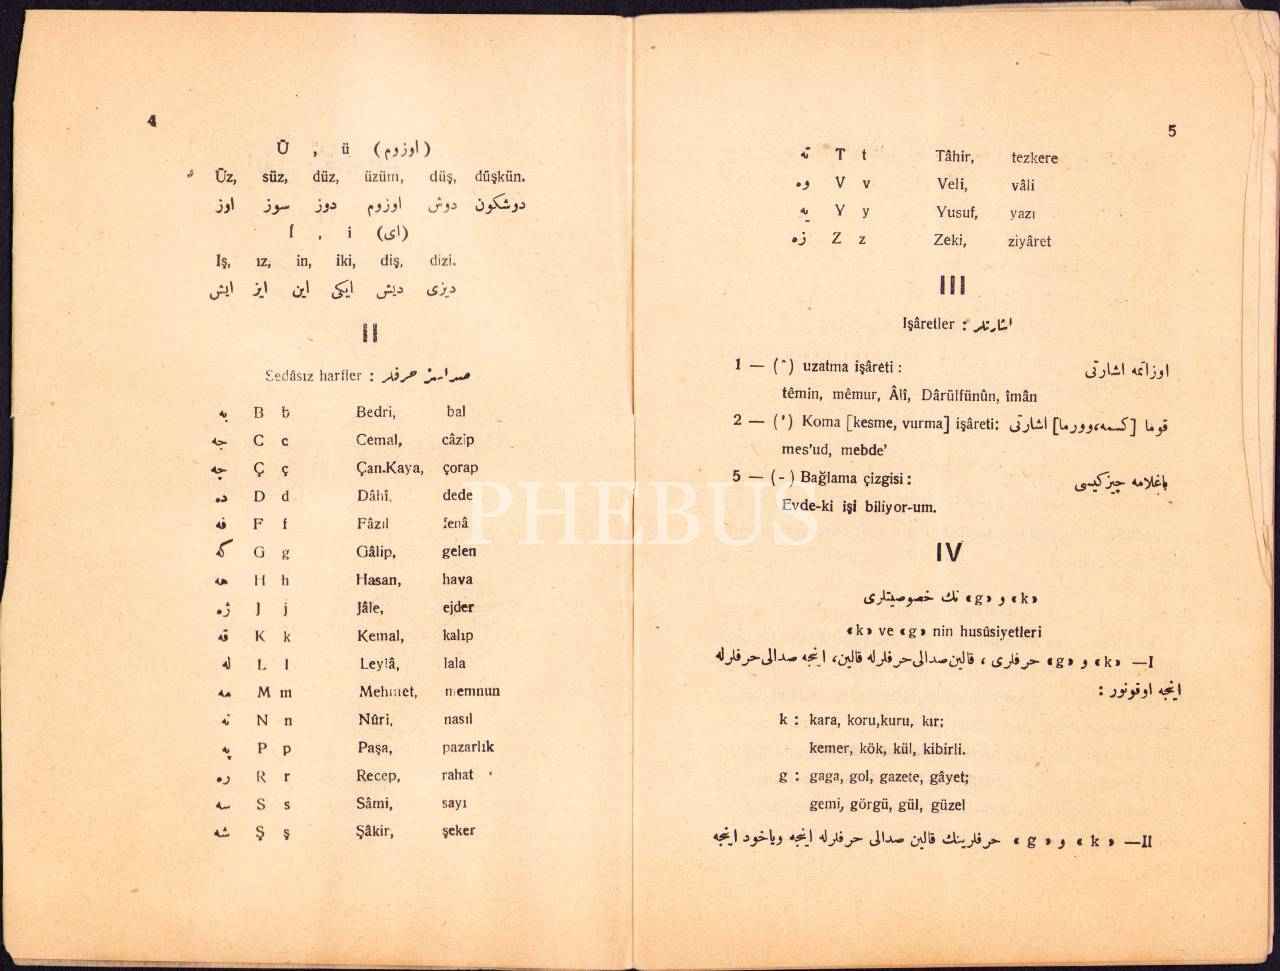 4
Ü , ü (اوزوم)
Üz, süz, düz, üzüm, düş, düşkün.
اوز سوز دوز اوزوم دوش دوشكون
İ , i (ای)
Iş, ız, in, iki, diş, dizi.
ایش ایز این ایكی دیش دیزی
II
Sedâsız harfler : صداسز حرفلر
به B b Bedri, bal
جه C c Cemal, câzip
چه Ç ç Çan.Kaya, çorap
ده D d Dâhi, dede
فه F f Fâzıl fenâ
كه G g Gâlip, gelen
هه H h Hasan, hava
ژه J j Jâle, ejder
قه K k Kemal, kalıp
له L l Leylâ, lala
مه M m Mehmet, memnun
نه N n Nûri, nasıl
په P p Paşa, pazarlık
ره R r Recep, rahat
سه S s Sâmi, sayı
شه Ş ş Şâkir, şeker
5
ته T t Tâhir, tezkere
وه V v Veli, vâli
یه Y y Yusuf, yazı
زه Z z Zeki, ziyâret
III
Işâretler : اشارتلر
1 — (ˆ) uzatma işâreti : اوزاتمه اشارتی
têmin, mêmur, Âlî, Dârülfünûn, îmân
2 — (') Koma [kesme, vurma] işâreti: قوما [كسمه،وورما] اشارتی
mes'ud, mebde'
5 — (-) Bağlama çizgisi : باغلامه چیزكیسی
Evde-ki işi biliyor-um.
IV
«k» و «g» نك خصوصیتلری
«k» ve «g» nin husûsiyetleri
I— «k» و «g» حرفلری ، قالین صدالی حرفلرله قالین، اینجه صدالی حرفلرله
اینجه اوقونور :
k : kara, koru,kuru, kır;
kemer, kök, kül, kibirli.
g : gaga, gol, gazete, gâyet;
gemi, görgü, gül, güzel
II— «k» و «g» حرفلرینك قالین صدالی حرفلرله اینجه ویاخود اینجه
PHEBUS